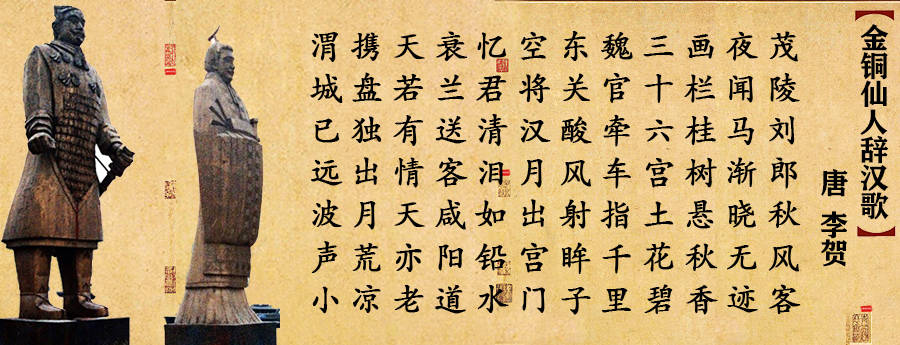 【金铜仙人辞汉歌】
唐 李贺
茂陵刘郎秋风客
夜闻马渐晓无迹
画栏桂树悬秋香
三十六宫土花碧
魏官牵车指千里
东关酸风射眸子
空将汉月出宫门
忆君清泪如铅水
衰兰送客咸阳道
天若有情天亦老
携盘独出月荒凉
渭城已远波声小